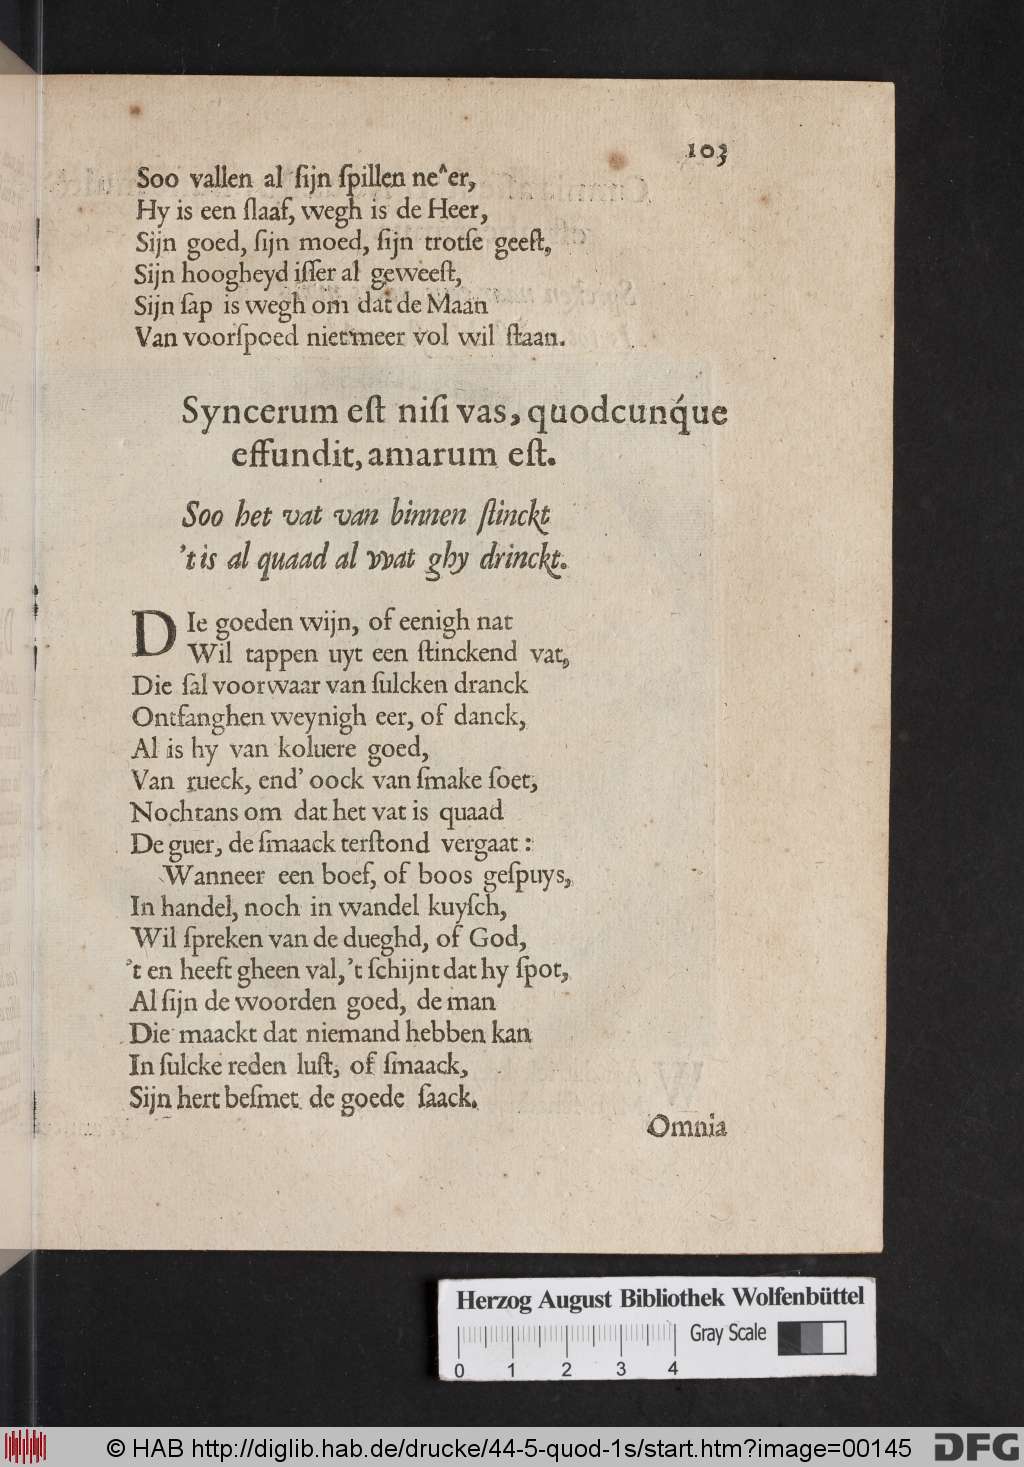 103
Soo vallen al ſijn ſpillen ne^er,
Hy is een ſlaaf, wegh is de Heer,
Sijn goed, ſijn moed, ſijn trotſe geeſt,
Sijn hoogheyd iſſer al geweeſt,
Sijn ſap is wegh om dat de Maan
Van voorſpoed niet meer vol wil ſtaan.
Syncerum eſt niſi vas, quodcunq́ue
effundit, amarum eſt.
Soo het vat van binnen ſtinckt
't is al quaad al wat ghy drinckt.
DIe goeden wijn, of eenigh nat
Wil tappen uyt een ſtinckend vat,
Die ſal voorwaar van ſulcken dranck
Ontfanghen weynigh eer, of danck,
Al is hy van koluere goed,
Van rueck, end' oock van ſmake ſoet,
Nochtans om dat het vat is quaad
De guer, de ſmaack terſtond vergaat:
Wanneer een boef, of boos geſpuys,
In handel, noch in wandel kuyſch,
Wil ſpreken van de dueghd, of God,
't en heeft gheen val, 't ſchijnt dat hy ſpot,
Al ſijn de woorden goed, de man
Die maackt dat niemand hebben kan
In ſulcke reden luſt, of ſmaack,
Sijn hert beſmet de goede ſaack.
Omnia
Herzog August Bibliothek Wolfenbüttel
Gray Scale
0 1 2 3 4
© HAB http://diglib.hab.de/drucke/44-5-quod-1s/start.htm?image=00145
DFG